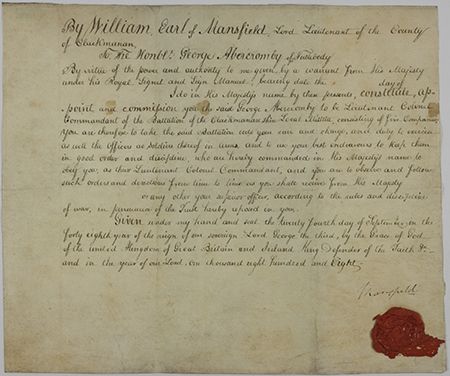 By William, Earl of Mansfield, Lord Lieutenant of the County
of Clackmanan,
To The Honble. George Abercromby of Tullibody
By virtue of the power and authority to me given, by a warrant from His Majesty
under his Royal Signet and Sign Manual, bearing date the day of
I do in His Majestys name by these presents, constitute, ap-
point and commission you the said George Abercromby to be Lieutenant Colonel
Commandant of the Battalion of the Clackmananshire Local Militia, consisting of Companies
You are therefore to take the said Battalion into your care and charge, and duly to exercise
as well the Officers as Soldiers thereof in arms, and to use your best endeavours to keep them
in good order and discipline, who are hereby commanded in His Majestys name to
obey you, as their Lieutenant Colonel Commandant, and you are to observe and follow
such orders and directions from time to time as you shall receive from His Majesty
or any other your superior officer, according to the rules and discipline
of war, in pursuance of the Trust hereby reposed in you.
Given under my hand and seal the twenty fourth day of September, in the
forty eighth year of the reign of our sovereign Lord George the third, by the Grace of God
of the united Kingdom of Great Britain and Ireland, King, Defender of the Faith &c
and in the year of our Lord, one thousand eight hundred and Eight.
Mansfield